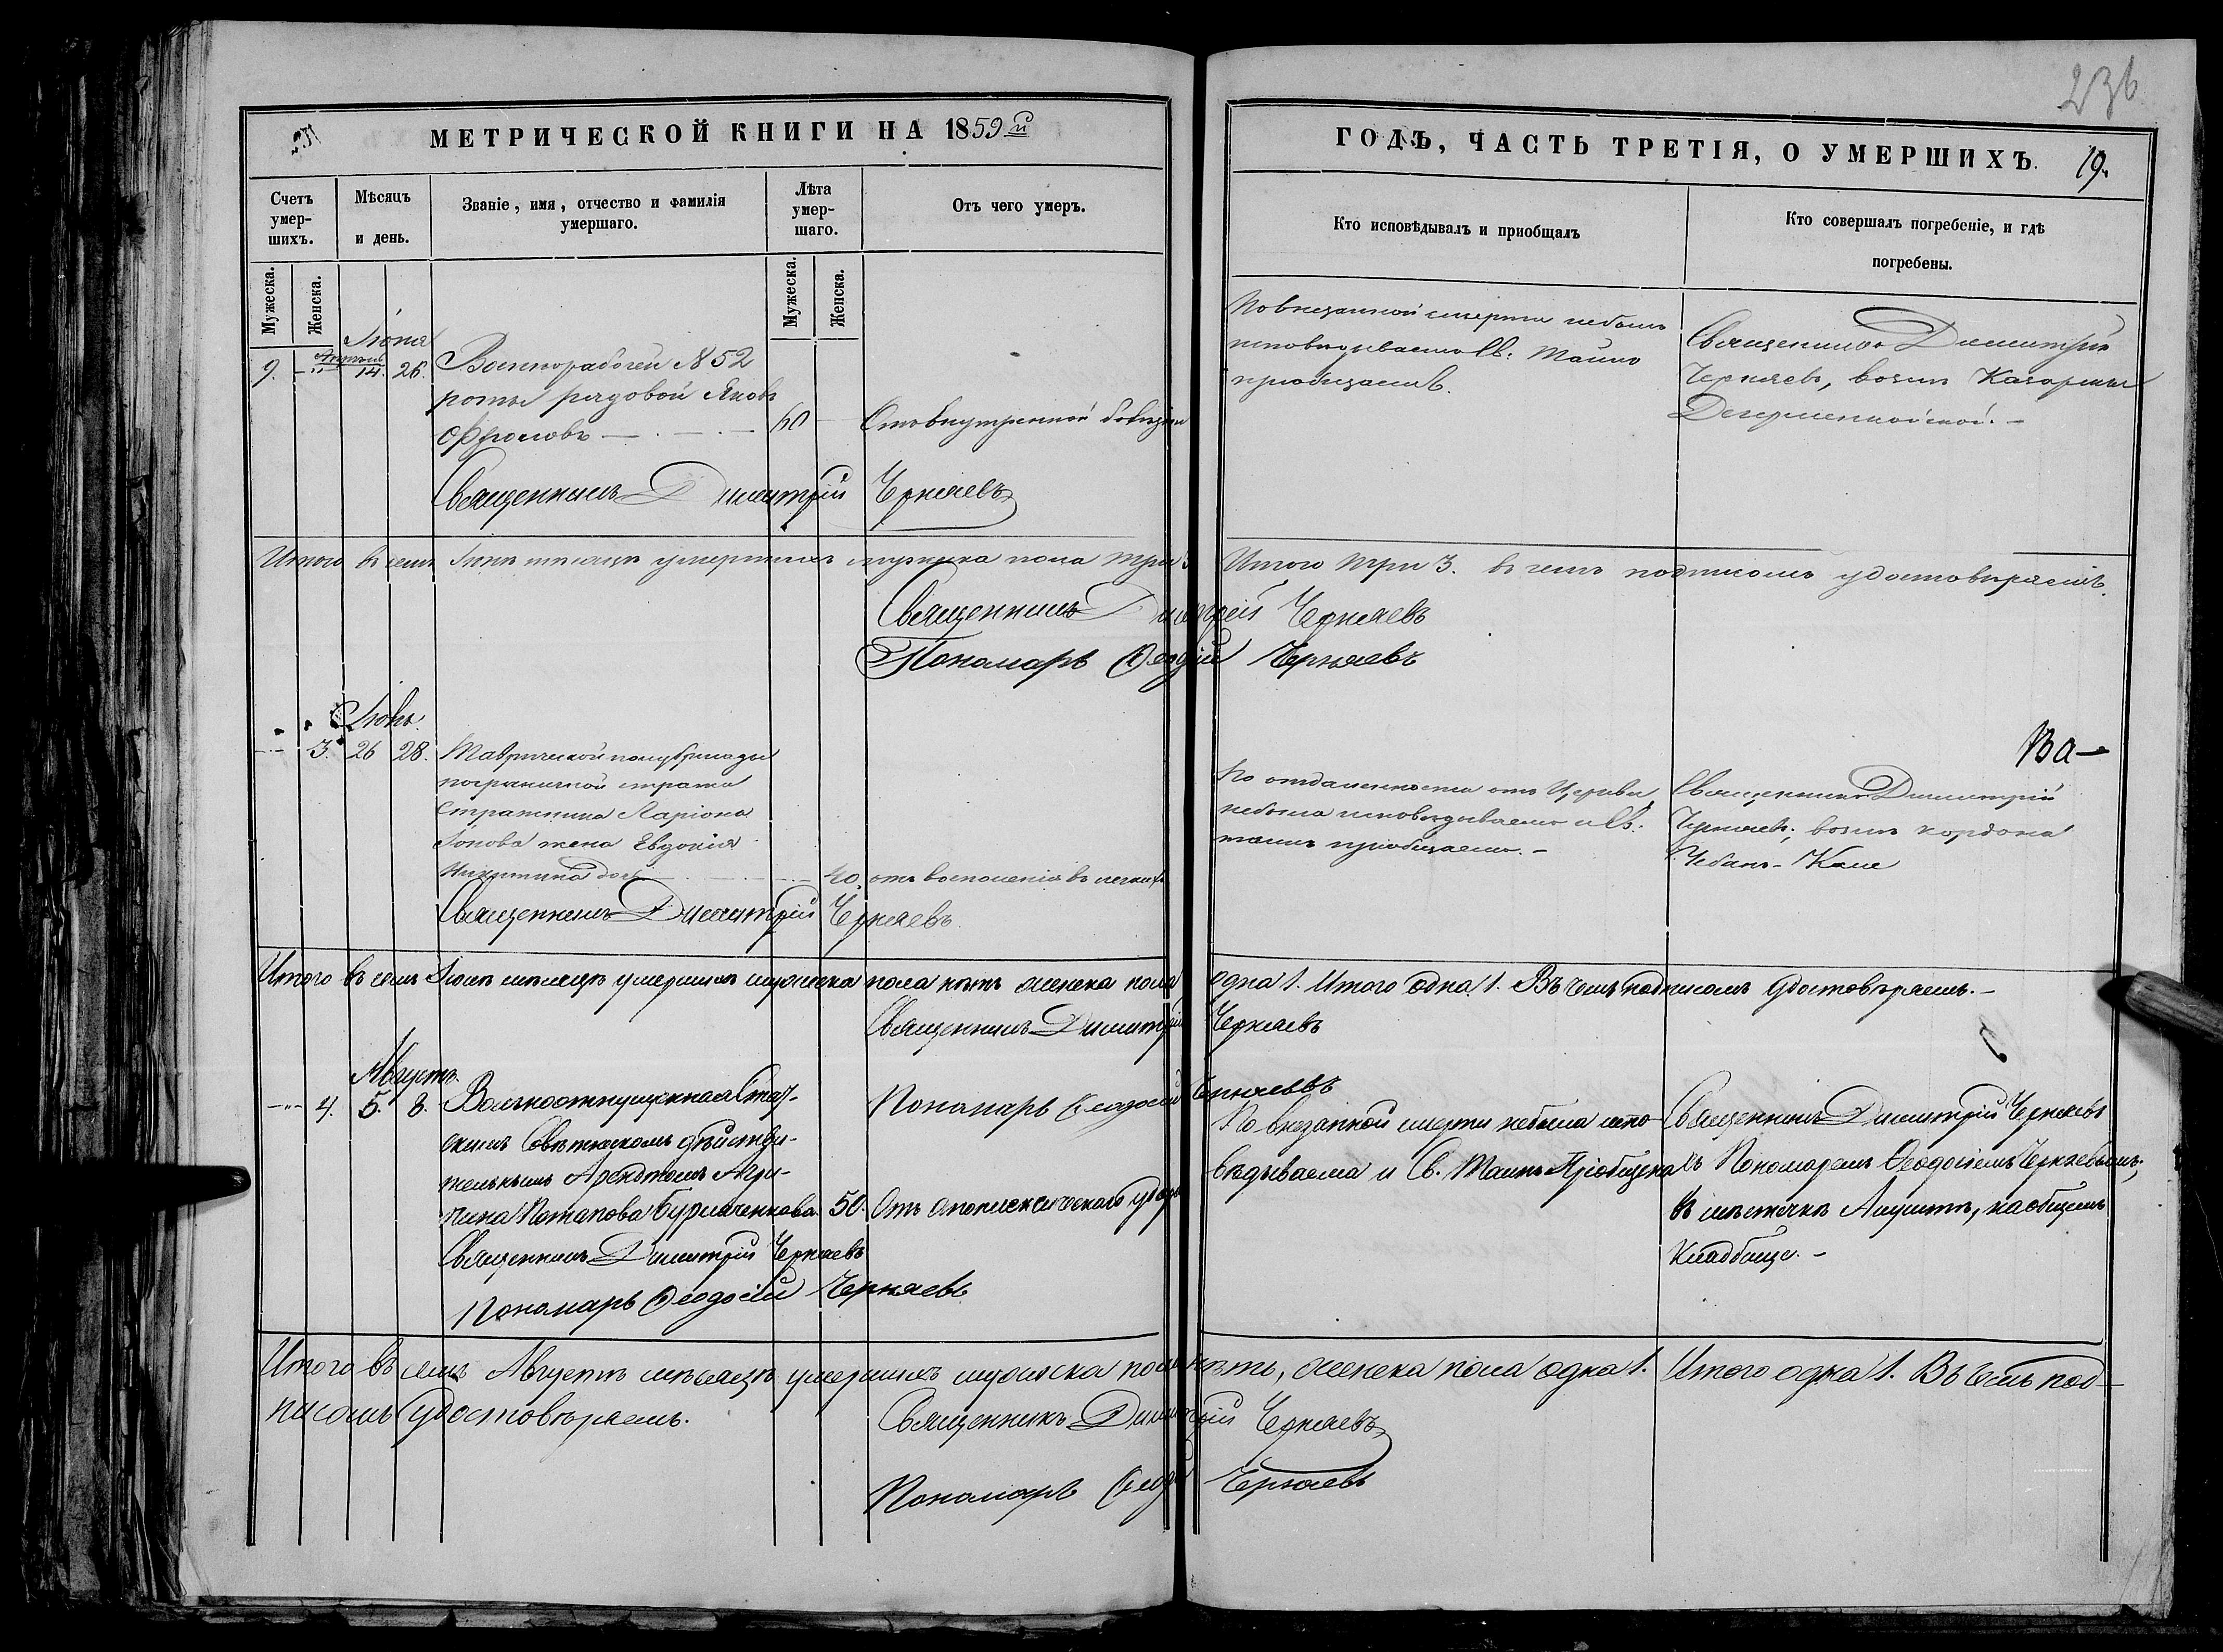 236
МЕТРИЧЕСКОЙ КНИГИ НА 1859й
ГОДЪ, ЧАСТЬ ТРЕТІЯ, О УМЕРШИХЪ.
19.
Счетъ умер-
шихъ.
Мѣсяцъ
и день.
Званіе, имя, отчество и фамилія
умершаго.
Лѣта
умер-
шаго.
Отъ чего умеръ.
Кто исповѣдывалъ и приобщалъ
Кто совершалъ погребеніе, и гдѣ
погребены.
Мужеска.
Женска.
Мужеска.
Женска.
Іюня
9. 14. 26. Военнорабочей № 52
роты рядовой Яковъ
Отъ внутренной болѣзни
Священникъ Димитрій Черняевъ
По внезапной смерти небылъ
исповѣдываемъ Св: Таинъ
приобщаемъ.
Священникъ Димитрій
Черняевъ, возлѣ Казармы
Итого въ семъ Іюнѣ мѣсяцѣ умершихъ мужеска пола три 3
Итого три 3. въ чемъ подписомъ удостовѣряемъ.
Священникъ Димитрій Черняевъ
Пономарь Ѳеодосій Черняевъ
Іюль.
3. 26 28. Таврической полубригады
пограничной стражи
Стражника Ларіона
Попова жена Евдокія
Никитина дочь 40. отъ воспаленія въ легкихъ
Священникъ Димитрій Черняевъ.
По отдаленности отъ Церкви
небыла исповѣдываема и Св:
таинъ приобщаема. -
Ва-
Священникъ Димитрій
Черняевъ; возлѣ кордона
Чебанъ-Кале
Итого въ семъ Іюлѣ мѣсяцѣ умершихъ мужеска пола нѣтъ женска пола одна 1. Итого одна 1. Въ чемъ подписомъ удостовѣряемъ. -
Священникъ Димитрій Черняевъ
Пономарь Ѳеодосій Черняевъ
Августъ.
4. 5. 8. Вольноотпущенная Стат-
скимъ Совѣтникомъ дѣйстви-
тельнымъ Арендтомъ Агри-
пина Потапова Бурлаченкова. 50. Отъ апоплексическаго удара
Священникъ Димитрій Черняевъ
Пономарь Ѳеодосій Черняевъ
По внезапной смерти небыла испо-
вѣдываема и Св. Таинъ Пріобщена
Священникъ Димитрій Черняевъ
съ Пономаремъ Ѳеодосіемъ Черняевымъ;
въ мѣстечкѣ Алуштѣ, на общемъ
Кладбище. -
Итого въ семъ Августѣ мѣсяцѣ умершихъ мужеска пола нѣтъ, женска пола одна 1. Итого одна 1. Въ чемъ под-
писомъ удостовѣряемъ.
Священникъ Димитрій Черняевъ
Пономарь Ѳеодосій Черняевъ